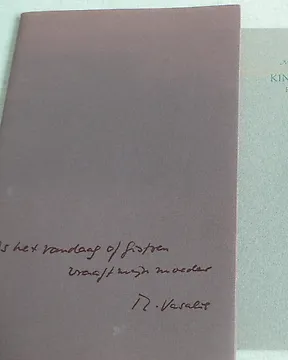 Is het vandaag of gistren
vraagt mijn moeder
M. Vasalis
KIN